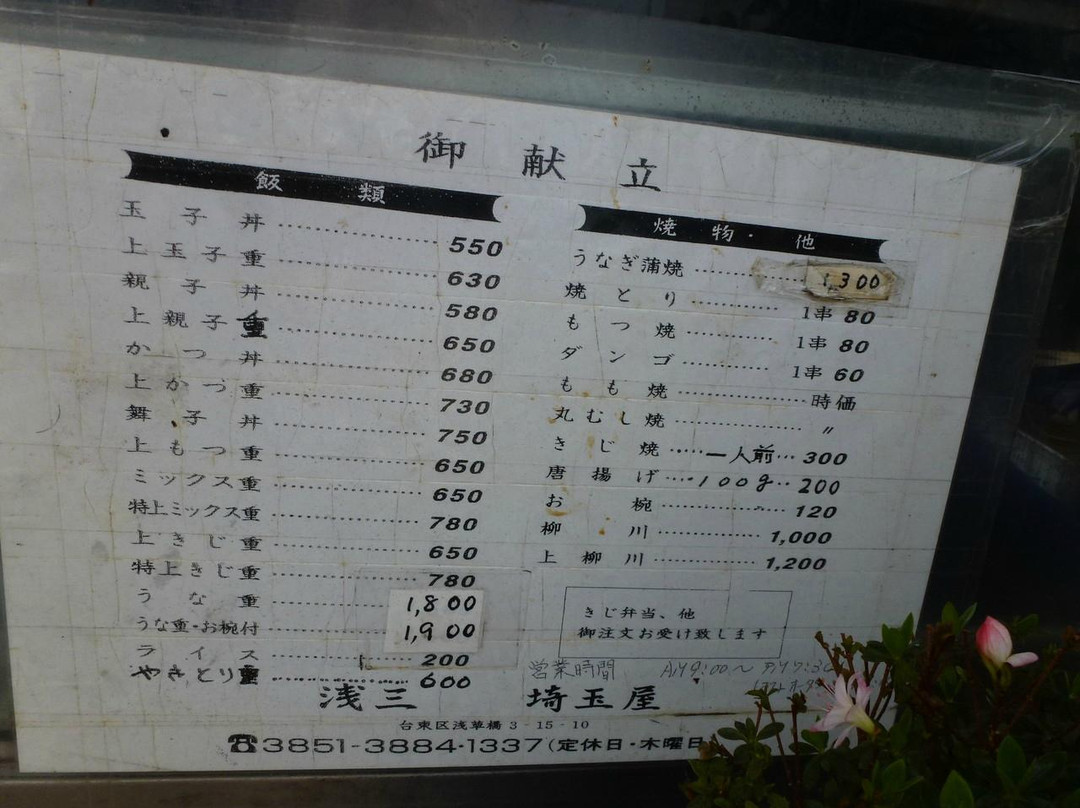 御献立
飯類
玉子丼……550
上玉子重……630
親子丼……580
上親子重……650
かつ丼……680
上かつ重……730
舞子丼……750
上もつ重……650
ミックス重……650
特上ミックス重……780
上きじ重……650
特上きじ重……780
うな重……1,800
うな重・お椀付……1,900
ライス……200
やきとり重……600
焼物・他
うなぎ蒲焼……1,300
焼とり……1串 80
もつ焼……1串 80
ダンゴ……1串 60
もも焼……時価
丸むし焼……〃
きじ焼……一人前…300
唐揚げ……100g…200
お椀……120
柳川……1,000
上柳川……1,200
きじ弁当、他
御注文お受け致します
営業時間
浅三 埼玉屋
台東区浅草橋3-15-10
☎3851-3884・1337(定休日・木曜日